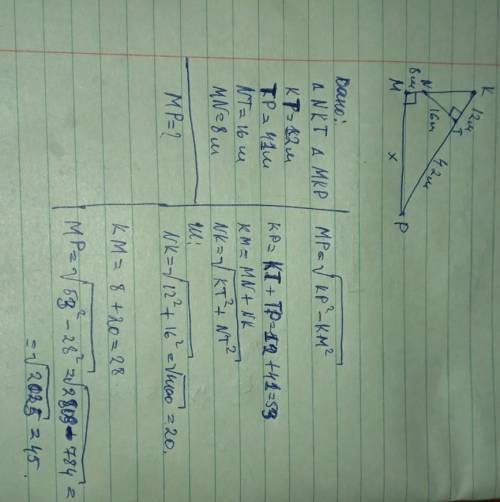 K
12м
T
N
16м
42м
8м
M
x
P
Дано:
Δ NKT Δ MKP
KT=12м
TP=41м
NT=16м
MN=8м
MP=?
MP=√KP²-KM²
KP=KT+TP=12+41=53
KM=MN+NK
NK=√KT²+NT²
NK=√12²+16²=√400=20.
KM=8+20=28
MP=√53²-28²=√2809-784=
=√2025=45.